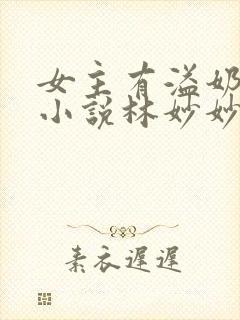 女主有溢奶
小說林妙妙
素衣遲遲